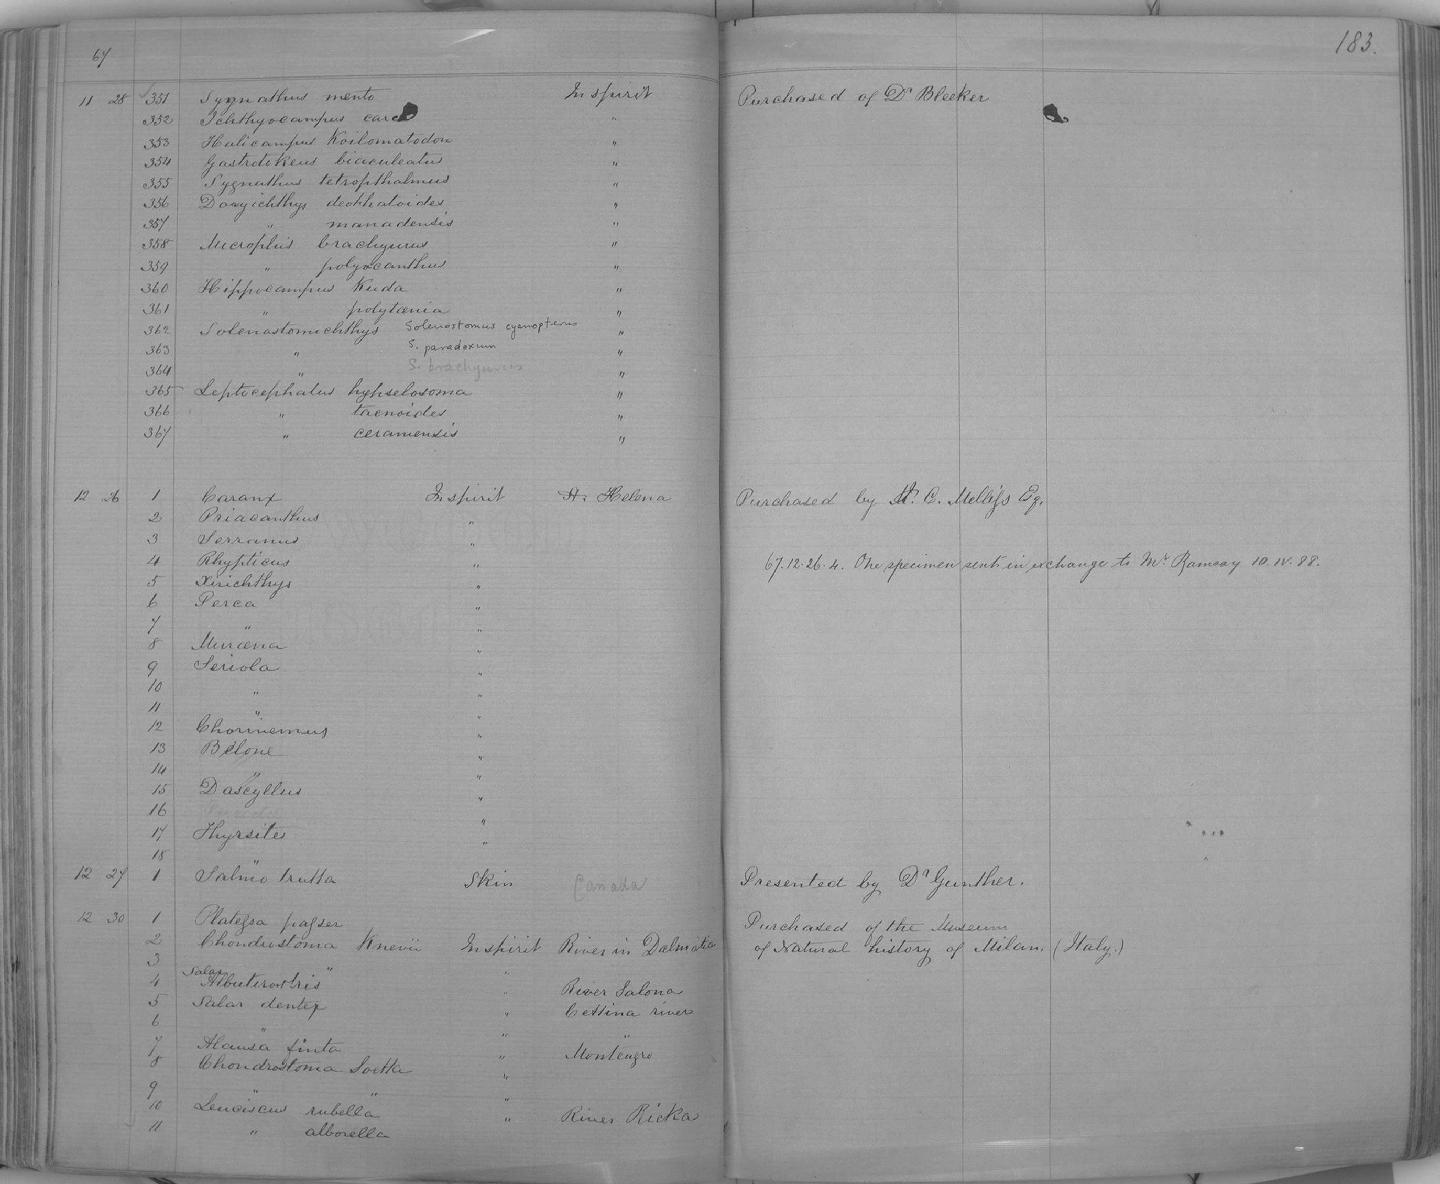 67
183.
11 28 351 Sygnathus mento In spirit Purchased of Dr Bleeker
352 Ichthyocampus carce "
353 Halicampus Koilomatodon "
354 Gastrotokeus biaculeatus "
355 Sygnathus tetropthalmus "
356 Doryichthys deokhatoides "
357 " manadensis "
358 Microphis brachyurus "
359 " polyacanthus "
360 Hippocampus Kuda "
361 " polytænia "
362 Solenostomichthys Solenostomus cyanopterus "
363 " S. paradoxum "
364 " S. brachyurus "
365 Leptocephalus hypselosoma "
366 " taenoides "
367 " ceramensis "
12 26 1 Caranx In spirit St. Helena Purchased by C. Melliss Esq.
2 Priacanthus "
3 Serranus "
4 Rhypticus " 67.12.26.4. One specimen sent in exchange to Mr Ramsay 10.IV.88.
5 Xirichthys "
6 Perca "
7 " "
8 Muræna "
9 Seriola "
10 " "
11 " "
12 Chorinemus "
13 Belone "
14 " "
15 Dascyllus "
16 "
17 Thyrsites "
18 "
12 27 1 Salmo trutta Skin Canada Presented by Dr Gunther.
12 30 1 Platessa passer Purchased of the Museum
2 Chondrostoma Knerii In spirit River in Dalmatia of Natural history of Milan. (Italy.)
3 " "
Salar
4 "  River Salona
5 Salar dentex " Cettina river
6 " " "
7 Alausa finta " Montengro
8 Chondrostoma Soetta "
9 " " "
10 Leuciscus rubella " River Ricka
11 " alborella